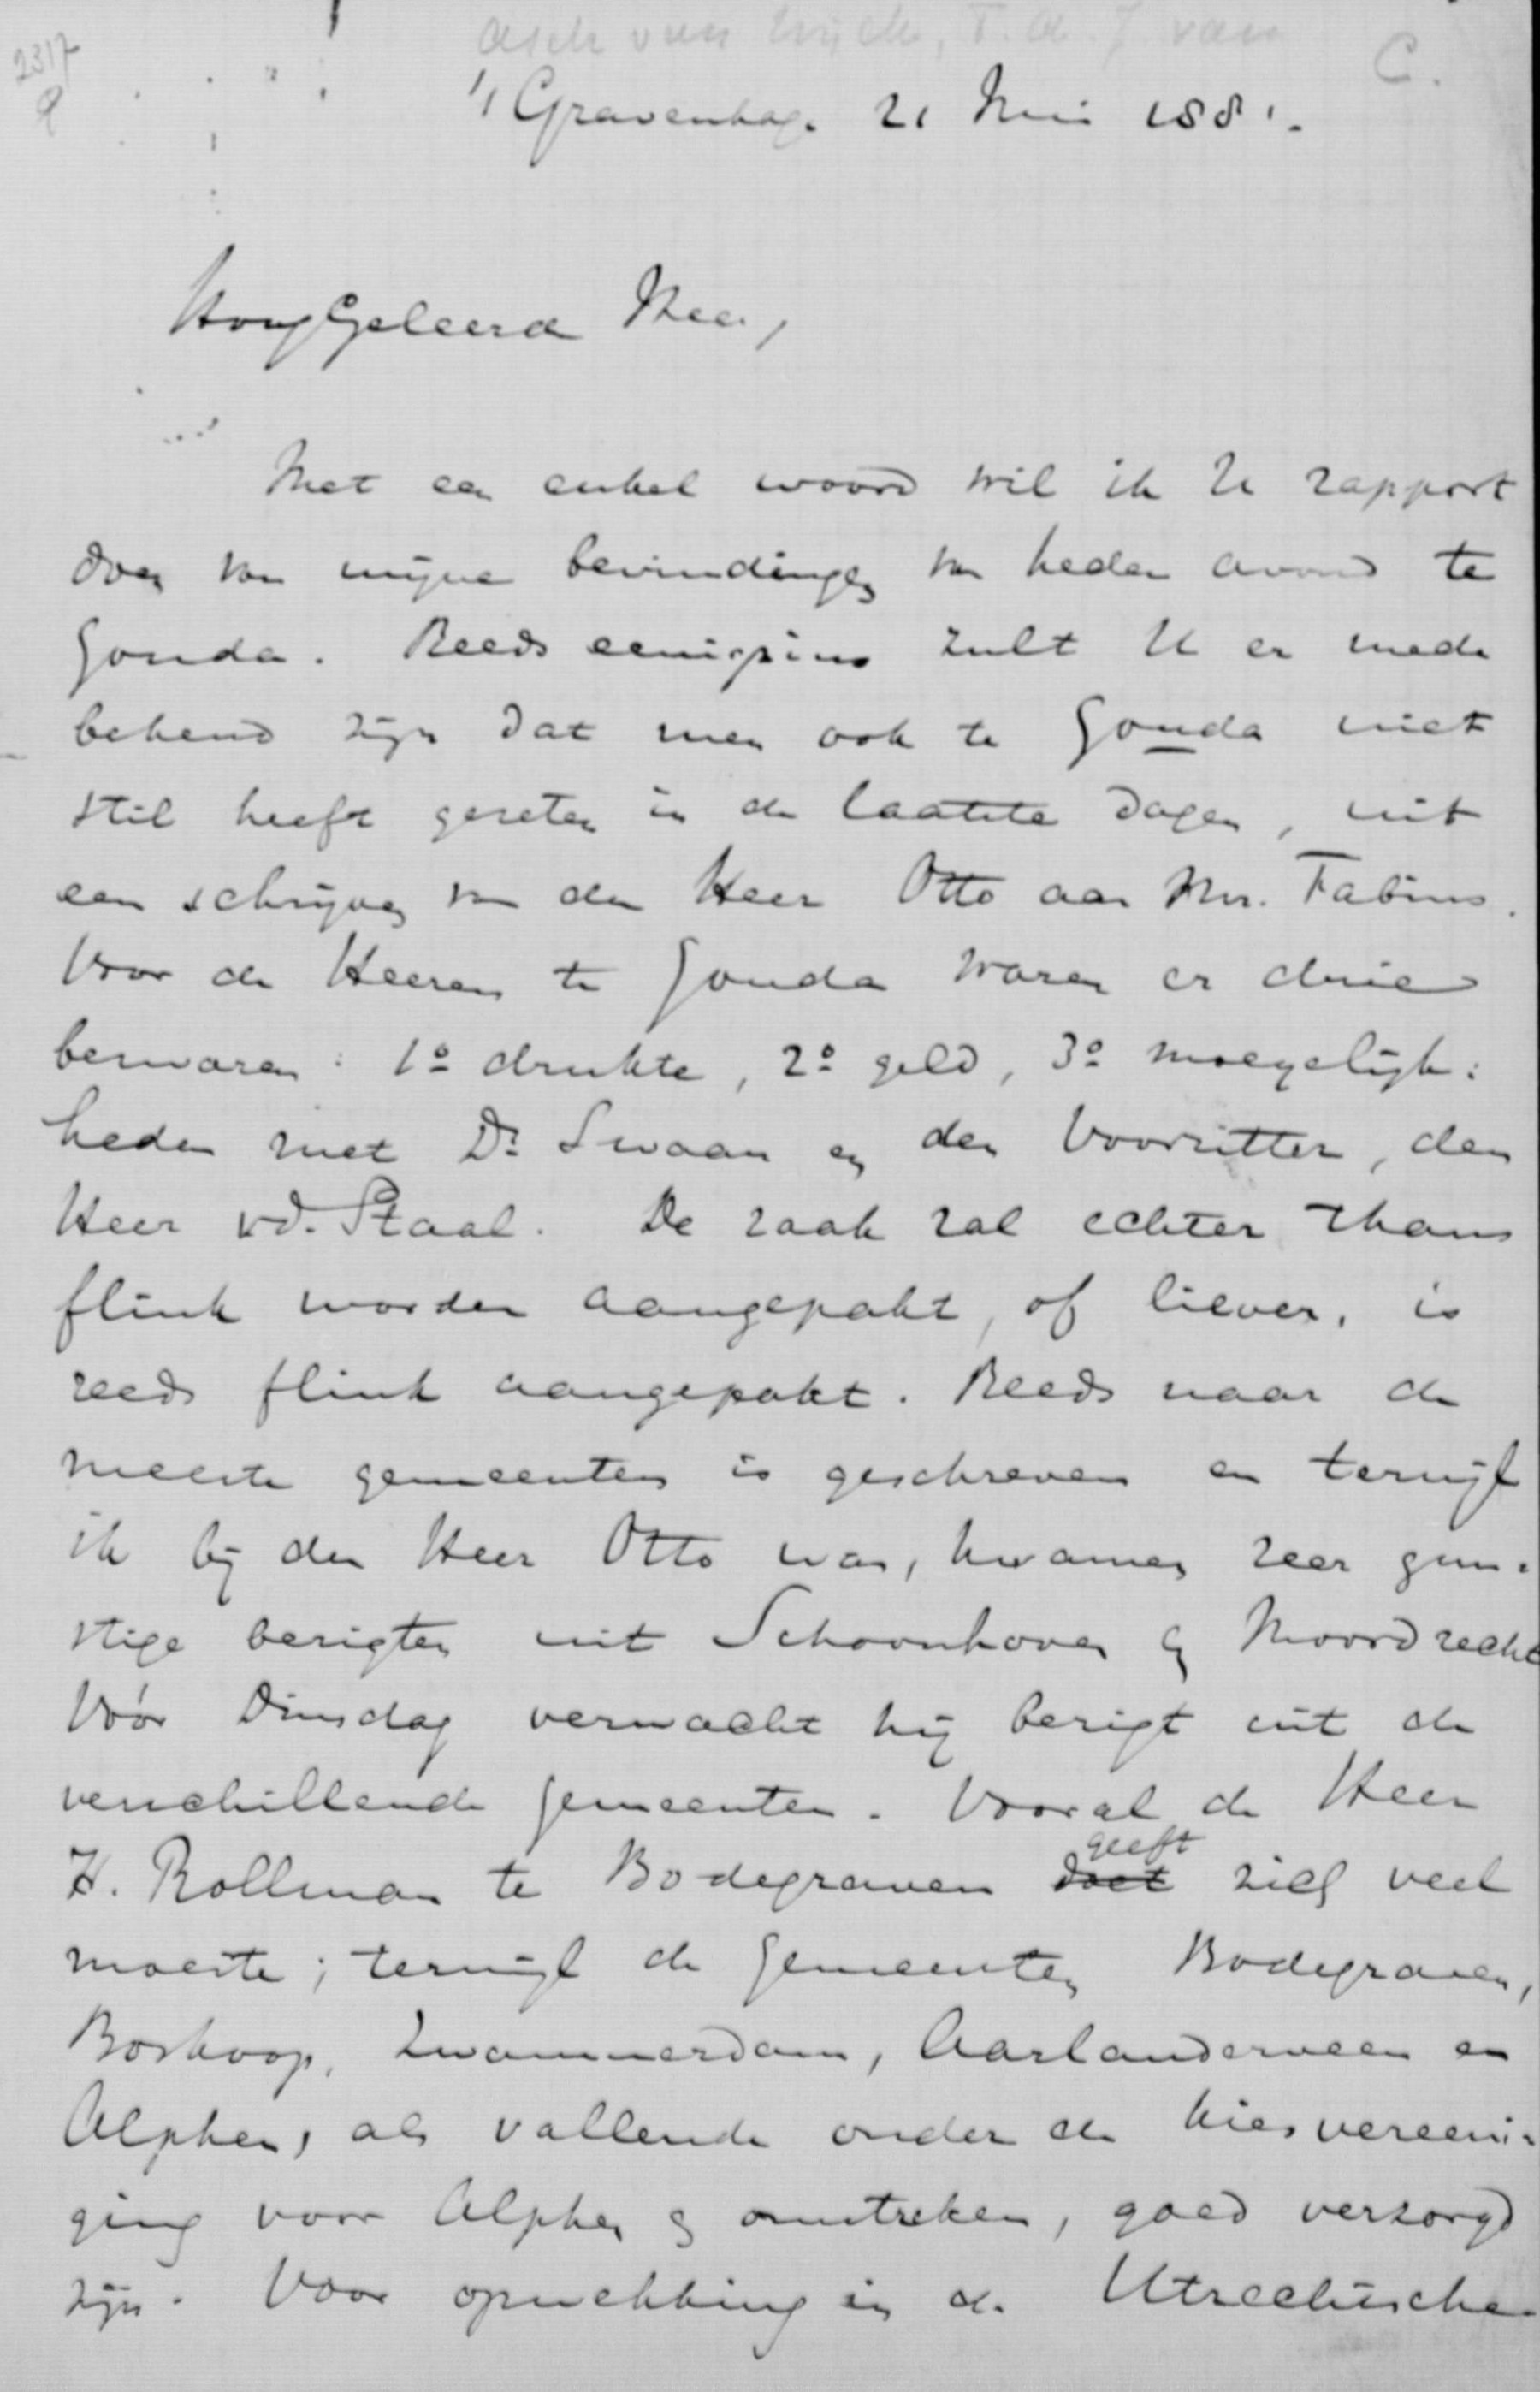 Asch van Wijck, T. A. J. van
C.
2317
's Gravenhage 21 Mei 1881.
HoogGeleerde Heer,
Met een enkel woord wil ik U rapport
doen van mijne bevindingen van heden avond te
Gouda. Reeds eenigzins zult U er mede
bekend zijn dat men ook te Gouda niet
stil heeft gezeten in de laatste dagen, uit
een schrijven van den Heer Otto aan Mr. Fabius.
Voor de Heeren te Gouda waren er drie
bezwaren: 1o drukte, 2o geld, 3o moeyelijk:
heden met Dr Swaan en den Voorzitter, den
Heer vd. Staal. De zaak zal echter thans
flink worden aangepakt, of liever, is
reeds flink aangepakt. Reeds naar de
meeste gemeenten is geschreven en terwijl
ik bij den Heer Otto was, kwamen zeer gun:
stige berigten uit Schoonhoven en Moordrecht
Vóór Dinsdag verwacht hij berigt uit de
verschillende gemeenten. Vooral de Heer
H. Rollman te Bodegraven doet geeft zich veel
moeite; terwijl de gemeenten Bodegraven,
Boskoop, Zwammerdam, Aarlanderveen en
Alphen, als vallende onder de kiesvereeni:
ging voor Alphen en omstreken, goed verzorgd
zijn. Voor opwekking in de Utrechtsche